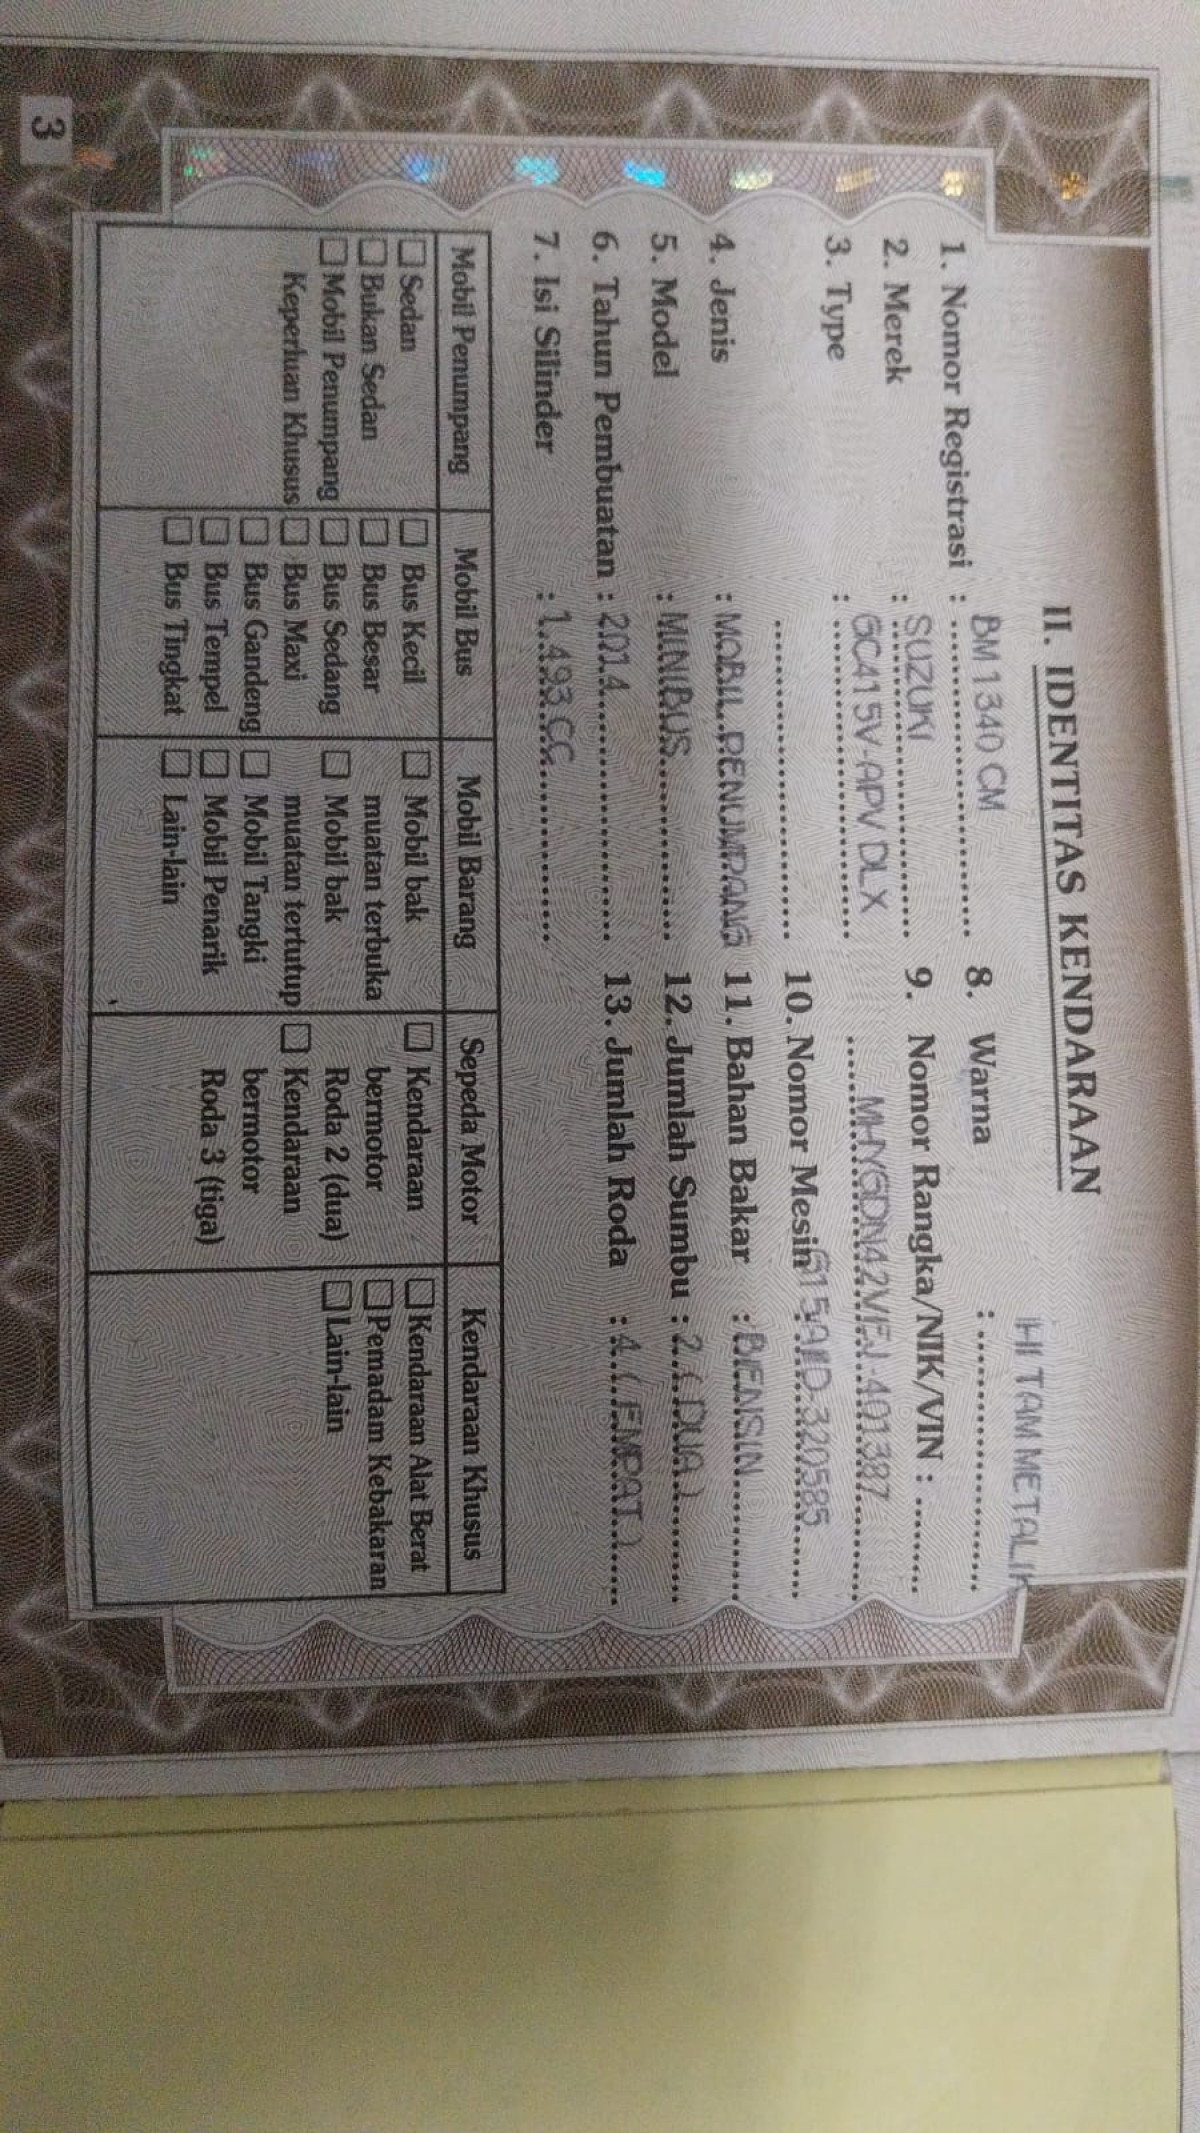 II. IDENTITAS KENDARAAN
1. Nomor Registrasi : BM 1340 CM
2. Merek : SUZUKI
3. Type : GC415V-APV DLX
4. Jenis : MOBIL PENUMPANG
5. Model : MINIBUS
6. Tahun Pembuatan : 2014
7. Isi Silinder : 1.493 CC
8. Warna : HITAM METALIK
9. Nomor Rangka/NIK/VIN :
MHYGDN42VEJ-401387
10. Nomor Mesin : G15AID-320585
11. Bahan Bakar : BENSIN
12. Jumlah Sumbu : 2 ( DUA )
13. Jumlah Roda : 4 ( EMPAT )
Mobil Penumpang
Sedan
Bukan Sedan
Mobil Penumpang
Keperluan Khusus
Mobil Bus
Bus Kecil
Bus Besar
Bus Sedang
Bus Maxi
Bus Gandeng
Bus Tempel
Bus Tingkat
Mobil Barang
Mobil bak
muatan terbuka
Mobil bak
muatan tertutup
Mobil Tangki
Mobil Penarik
Lain-lain
Sepeda Motor
Kendaraan
bermotor
Roda 2 (dua)
Kendaraan
bermotor
Roda 3 (tiga)
Kendaraan Khusus
Kendaraan Alat Berat
Pemadam Kebakaran
Lain-lain
3